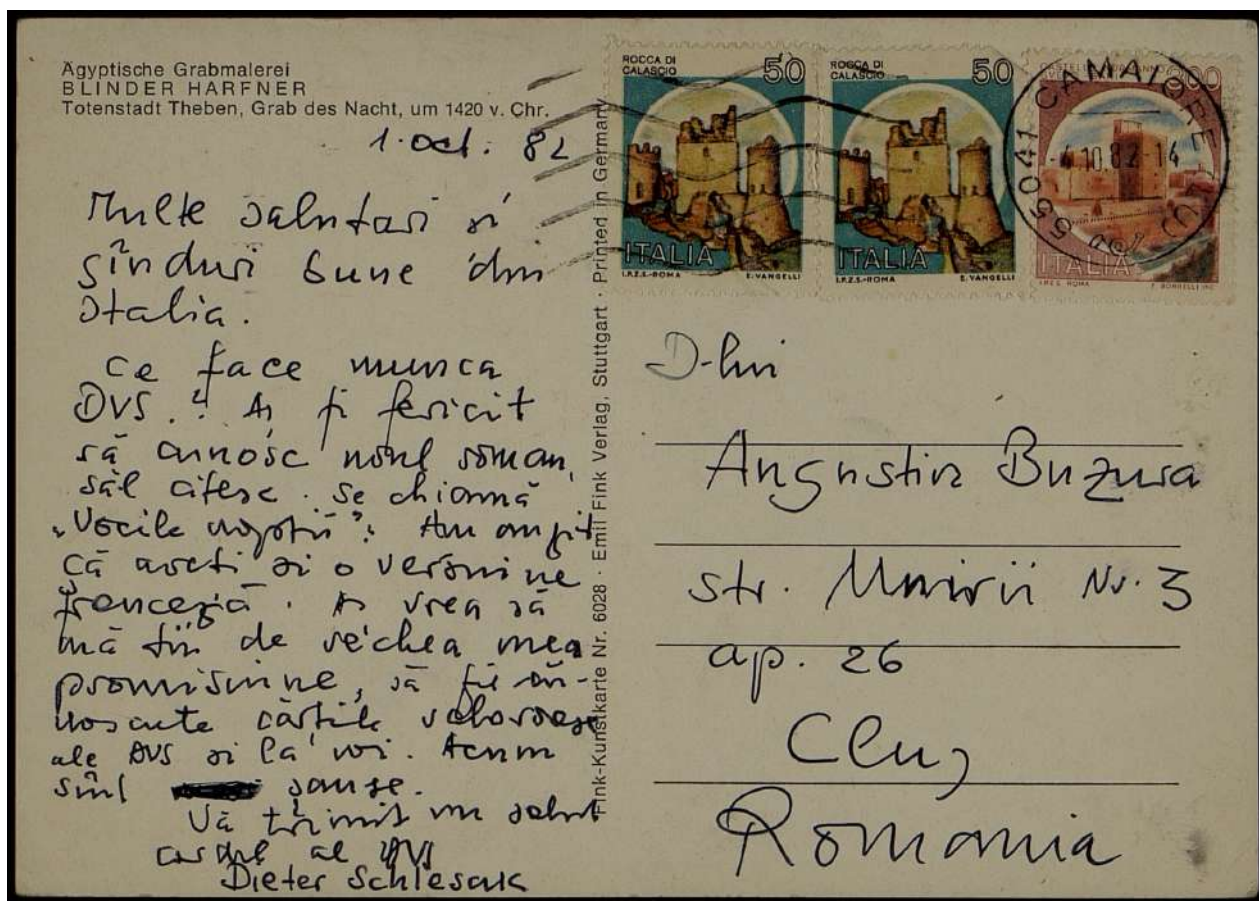 Ägyptische Grabmalerei
BLINDER HARFNER
Totenstadt Theben, Grab des Nacht, um 1420 v. Chr.
1. oct. 82
Multe salutari si
gînduri bune din
Italia.
Ce face munca
DVS.? As fi fericit
să cunosc noul roman,
să-l citesc. Se chiamă
"Vocile nopții"? Am auzit
că aveti si o versiune
franceză. As vrea să
mă țin de vechea mea
promisiune, să fie cu-
noscute cărtile valoroase
ale DVS si la noi. Acum
sînt sanse.
Vă trimit un salut
cordial al DVS
Dieter Schlesak
Fink-Kunstkarte Nr. 6028 · Emil Fink Verlag, Stuttgart · Printed in Germany
ROCCA DI
CALASCIO 50
ITALIA
I.P.Z.S.-ROMA E. VANGELLI
ROCCA DI
CALASCIO 50
ITALIA
I.P.Z.S.-ROMA E. VANGELLI
ITALIA
55041 CAMAIORE
-4.10.82-14
D-lui
Augustin Buzura
str. Unirii Nr. 3
ap. 26
Cluj
Romania